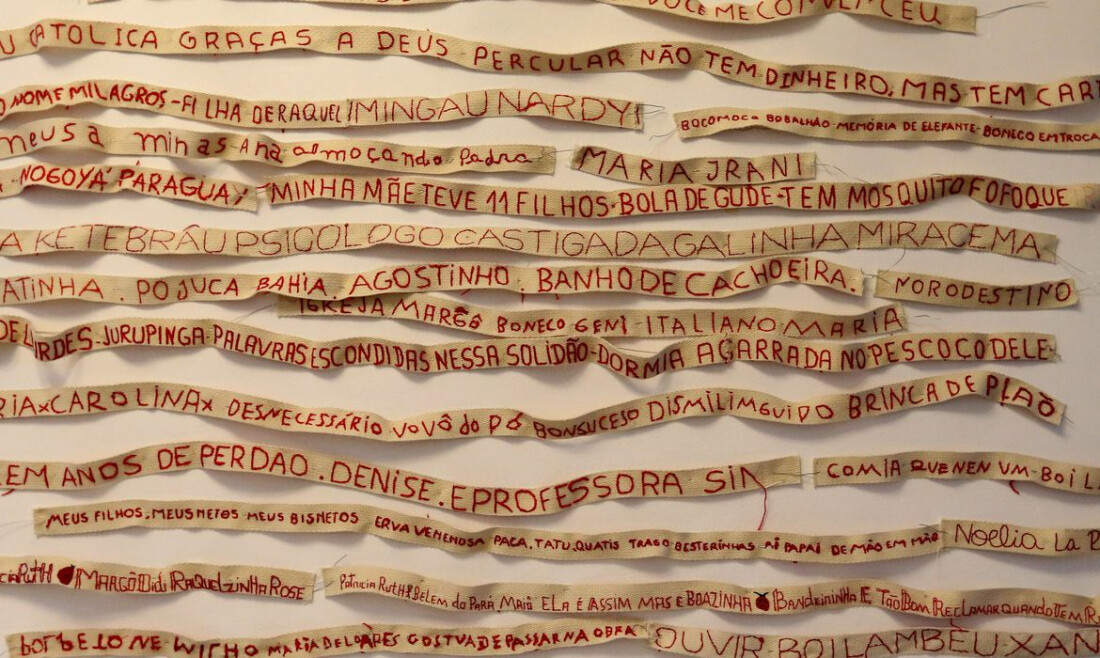 VOCÊ ME CONVENCEU
CATOLICA GRAÇAS A DEUS PERCULAR NÃO TEM DINHEIRO, MAS TEM CART
NOME MILAGROS-FILHA DE RAQUEL MINGAU NARDY
BOCOMOCA BOBALHÃO-MEMÓRIA DE ELEFANTE-BONECO EM TROCA
meus a minas Ana almoçando Padra
MARIA-IRANI
NOGOYÁ PARAGUAY
MINHA MÃE TEVE 11 FILHOS-BOLA DE GUDE-TEM MOSQUITO FOFOQUE
A KETEBRÂU PSICOLOGO CASTIGADA GALINHA MIRACEMA
ATINHA. POJUCA BAHIA. AGOSTINHO. BANHO DE CACHOEIRA.
NORODESTINO
IGREJA MARGÔ BONECO GENI-ITALIANO MARIA
DE LURDES-JURUPINGA-PALAVRAS ESCONDIDAS NESSA SOLIDÃO-DORMIA AGARRADA NO PESCOÇO DELE-
RIAxCAROLINAx DESNECESSÁRIO VOVÔ do PÓ BONSUCESO DISMILIMGUIDO BRINCA DE PIÃO
EM ANOS DE PERDAO. DENISE. E PROFESSORA SIM
COMIA QUE NEN UM-BOI L
MEUS FILHOS, MEUS NETOS-MEUS BISNETOS ERVA VENENOSA PACA, TATU, QUATIS TRAGO BESTERINHAS AÍ PAPAI DE MÃO EM MÃO
NOELIA LA
RUTH MARGÔ DIDI RAQUELZINHA ROSE
PATRICIA RUTH BELEM do PARÁ MAIÁ ELA É ASSIM MAS E BOAZINHA BANDEIRINHA E TÃO BOM RECLAMAR QUANDO TEM R
MARIA DE LOURES GOSTVA DE PASSAR NA OBRA
OUVIR-BOI LAMBEU XAN